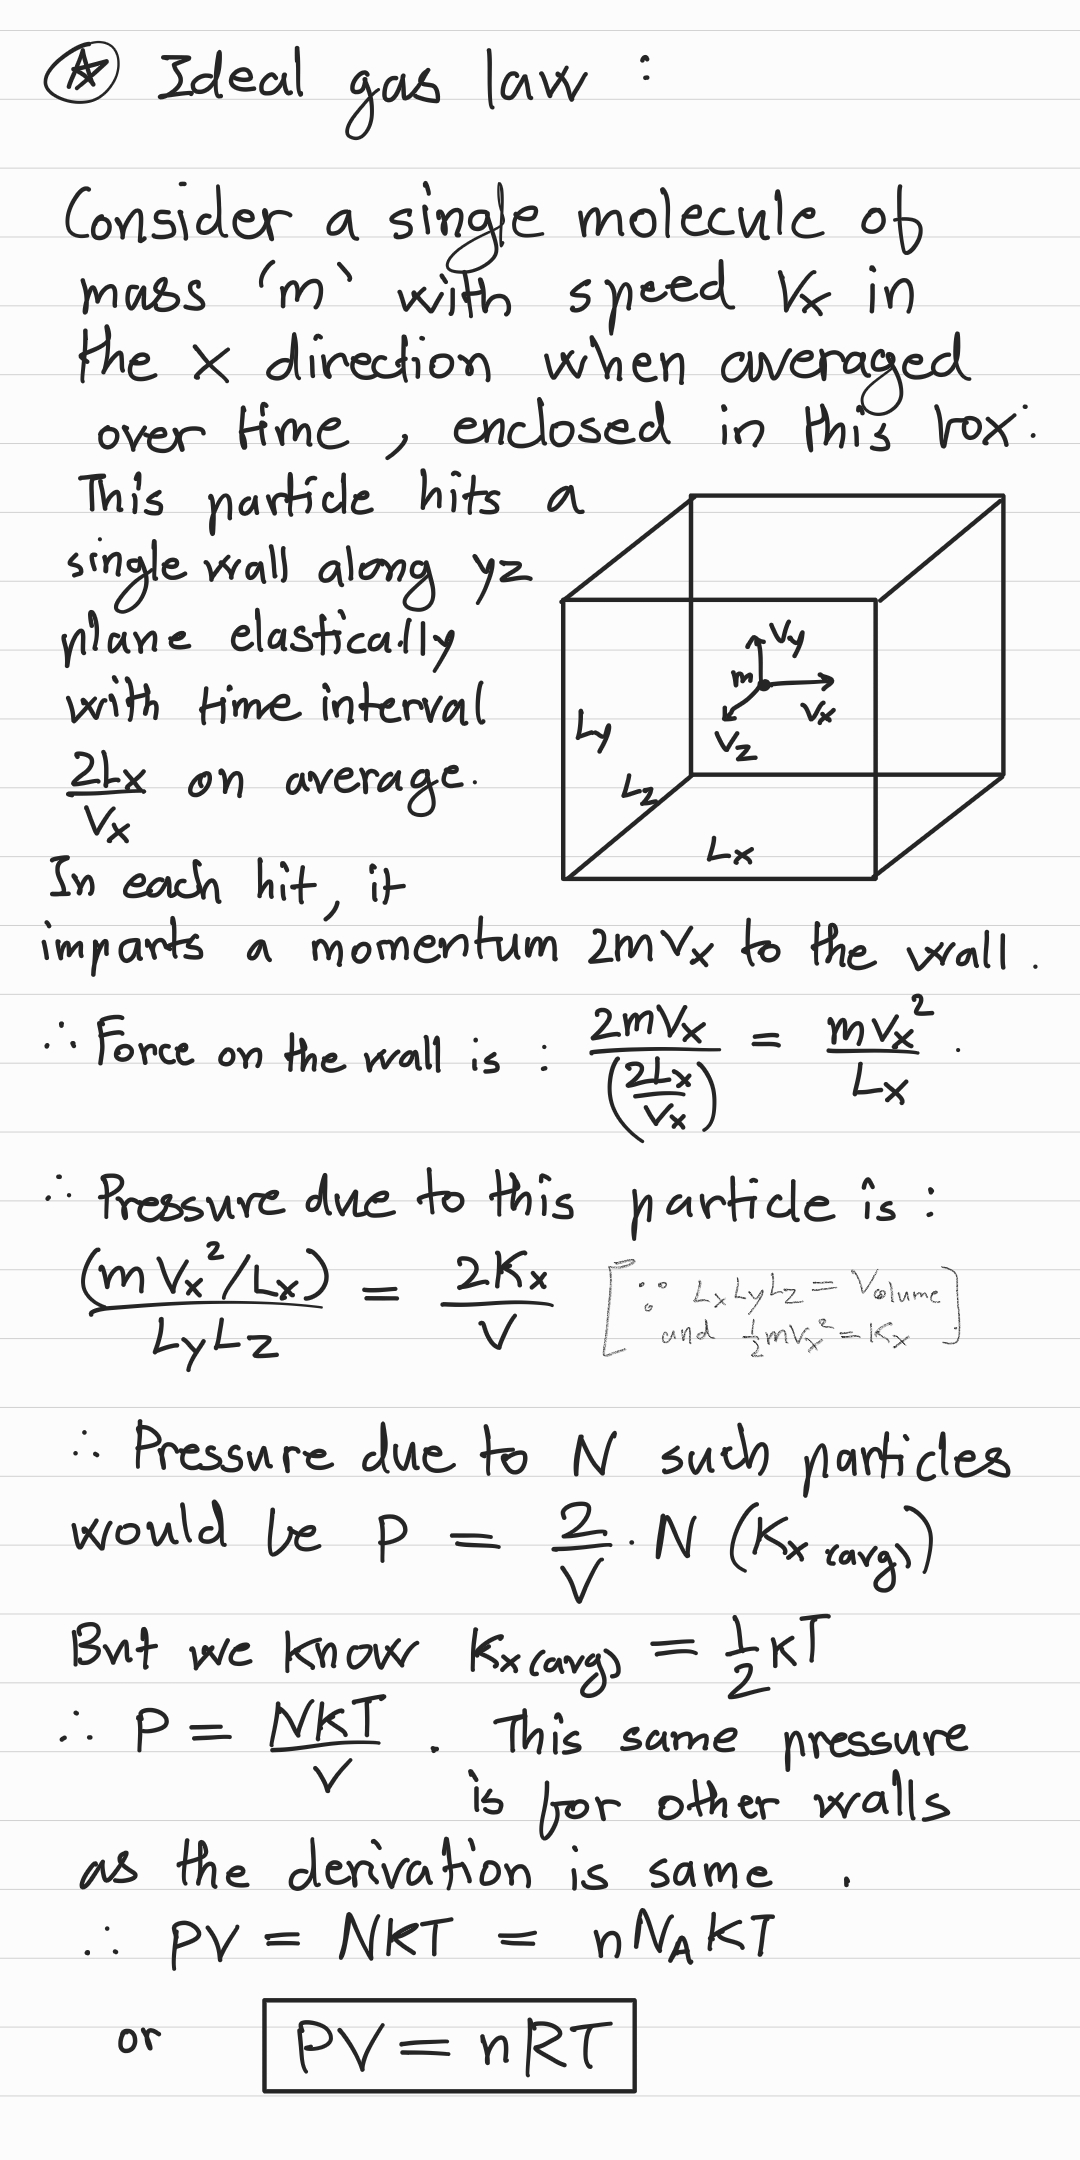 Ⓐ Ideal gas law :
Consider a single molecule of
mass 'm' with speed Vx in
the x direction when averaged
over time , enclosed in this box.
This particle hits a
single wall along yz
plane elastically
with time interval
2Lx/Vx on average.
In each hit, it
imparts a momentum 2mVx to the wall .
Vy
m
Vx
Vz
Ly
Lz
Lx
∴ Force on the wall is : 2mVx/(2Lx/Vx) = mVx²/Lx .
∴ Pressure due to this particle is :
(mVx²/Lx)/LyLz = 2Kx/V [∵ LxLyLz = Volume
and ½mVx² = Kx]
∴ Pressure due to N such particles
would be P = 2/V · N (Kx (avg))
But we know Kx(avg) = ½ KT
∴ P = NKT/V . This same pressure
is for other walls
as the derivation is same .
∴ PV = NKT = nN_AKT
or PV = nRT